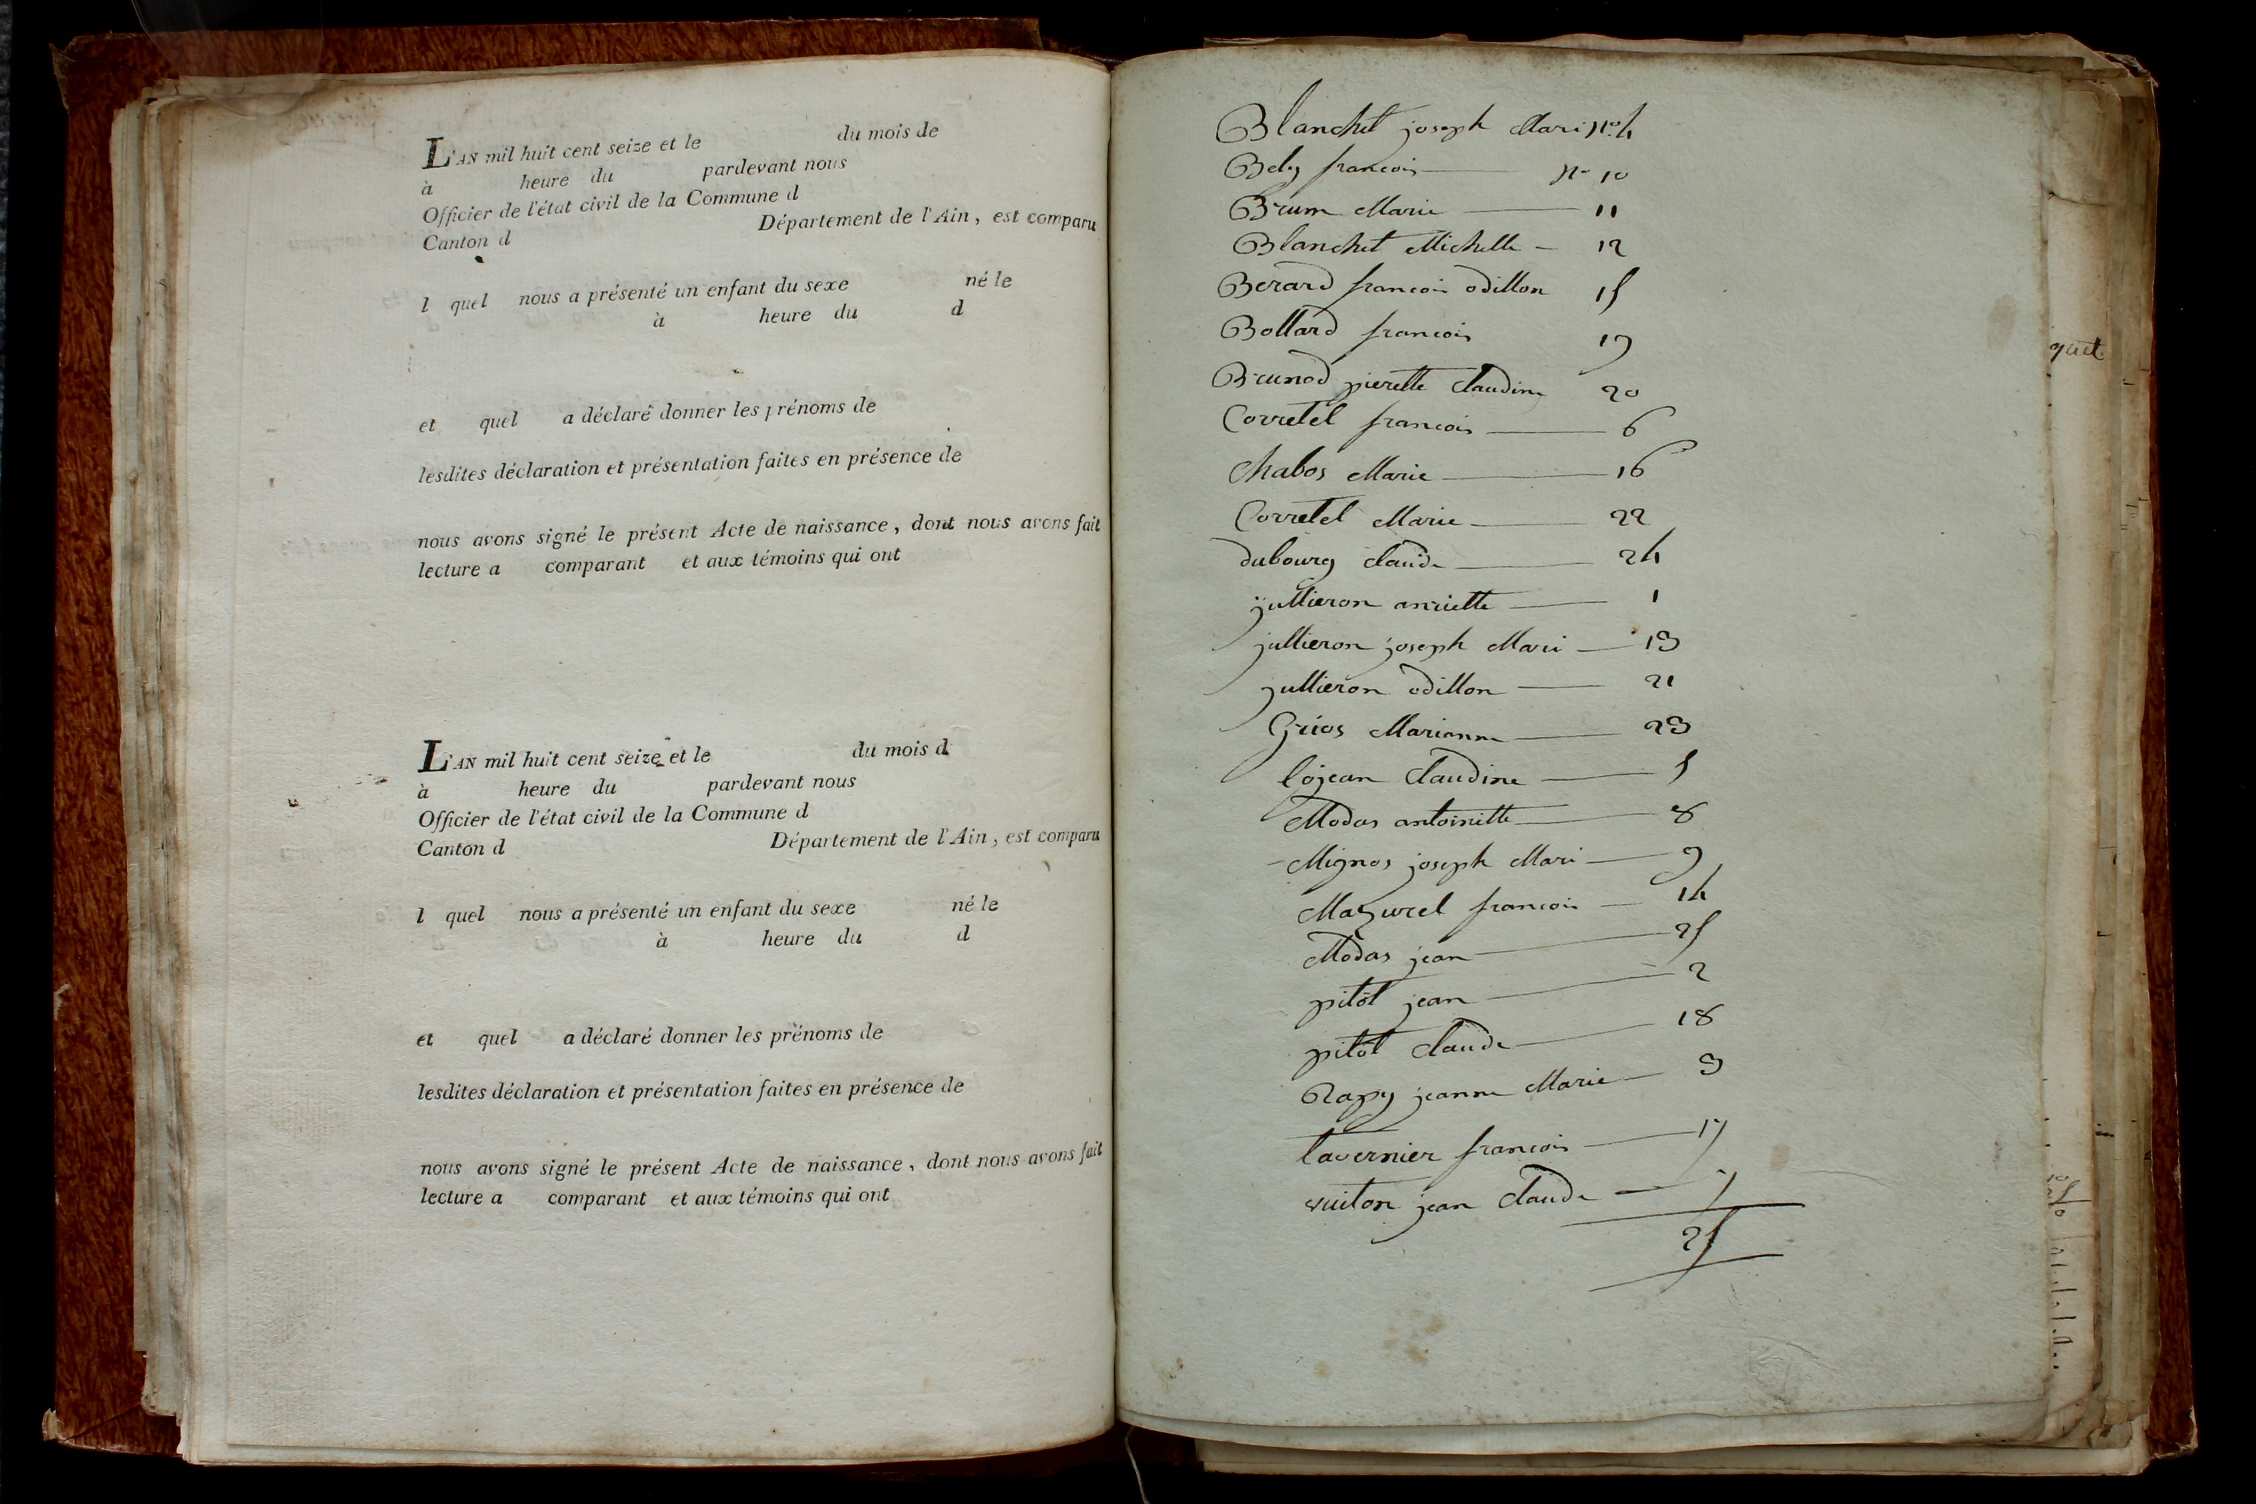 L'AN mil huit cent seize et le du mois de
à heure du pardevant nous
Officier de l'état civil de la Commune d
Canton d Département de l'Ain, est comparu
l quel nous a présenté un enfant du sexe né le
à heure du d
et quel a déclaré donner les prénoms de
lesdites déclaration et présentation faites en présence de
nous avons signé le présent Acte de naissance, dont nous avons fait
lecture a comparant et aux témoins qui ont
L'AN mil huit cent seize et le du mois d
à heure du pardevant nous
Officier de l'état civil de la Commune d
Canton d Département de l'Ain, est comparu
l quel nous a présenté un enfant du sexe né le
à heure du d
et quel a déclaré donner les prénoms de
lesdites déclaration et présentation faites en présence de
nous avons signé le présent Acte de naissance, dont nous avons fait
lecture a comparant et aux témoins qui ont
Blanchet joseph Mari no 4
Bely francois no 10
Brum Marie 11
Blanchet Michelle 12
Berard francois odillon 15
Bollard francois 19
Brunod pierette Claudine 20
Corretel francois 6
Chabos Marie 16
Corretel Marie 22
dubourg Claude 24
jullieron anriette 1
jullieron joseph Mari 13
jullieron odillon 21
Grios Marianne 23
lojean Claudine 5
Modas antoinette 8
Mignos joseph Mari 9
Mazurel francois 14
Modas jean 25
pitot jean 2
pitot Claude 18
Rapy jeanne Marie 3
tavernier francois 17
vuiton jean Claude 7
25